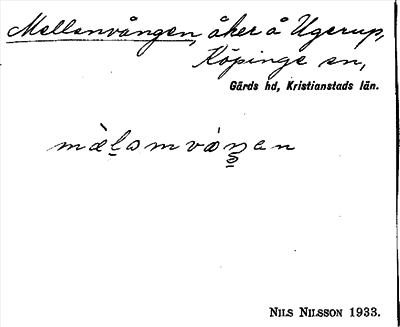 Mellanvången, åker å Ugerup,
Köpinge sn,
Gärds hd, Kristianstads län.
NILS NILSSON 1933.